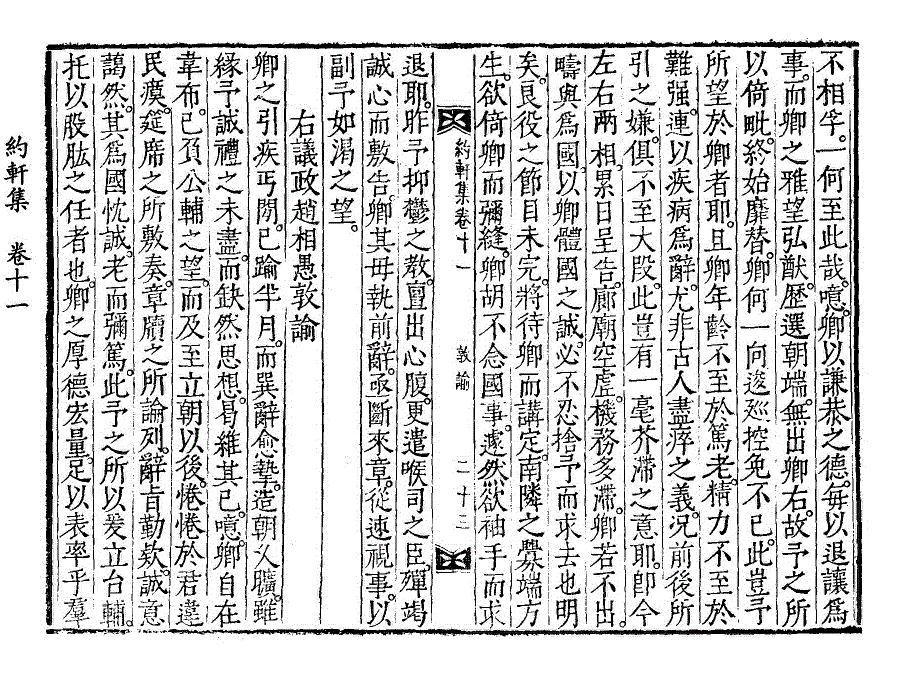 不相孚。一何至此哉。噫。卿以謙恭之德。每以退讓爲
事。而卿之雅望弘猷。歷選朝端。無出卿右。故予之所
以倚毗。終始靡替。卿何一向逡巡。控免不已。此豈予
所望於卿者耶。且卿年齡不至於篤老。精力不至於
難强。連以疾病爲辭。尤非古人盡瘁之義。況前後所
引之嫌。俱不至大段。此豈有一毫芥滯之意耶。卽今
左右兩相。累日呈告。廊廟空虛。機務多滯。卿若不出。
疇與爲國。以卿體國之誠。必不忍捨予而求去也明
矣。良役之節目未完。將待卿而講定。南隣之釁端方
生。欲倚卿而彌縫。卿胡不念國事。遽然欲袖手而求
約軒集卷十一
敦諭
二十三
退耶。昨予抑鬱之敎。亶出心腹。更遣喉司之臣。殫竭
誠心而敷告。卿其毋執前辭。亟斷來章。從速視事。以
副予如渴之望。
右議政趙相愚敦諭
卿之引疾丐閒。已踰半月。而巽辭愈摯。造朝久曠。雖
緣予誠禮之未盡。而缺然思想。曷維其已。噫。卿自在
韋布。已負公輔之望。而及至立朝以後。惓惓於君違
民瘼。筵席之所敷奏。章牘之所論列。辭旨勤欵。誠意
藹然。其爲國忱誠。老而彌篤。此予之所以爰立台輔。
托以股肱之任者也。卿之厚德宏量。足以表率乎羣
約軒集　卷十一